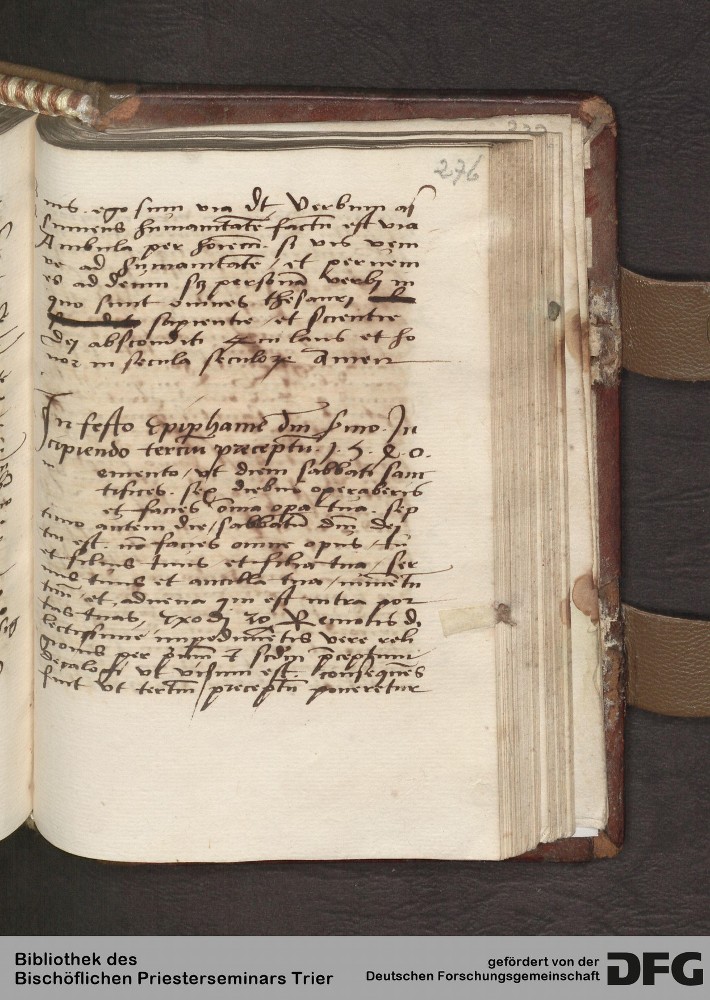 276
ms. ego sum via dt Verbum as
sumens humanitatē factū est via
Ambula per hoiem. si vis veni
re ad humanitatē, et perveni
es ad deum scz personā verbi in
quo sunt omnes thesauri
sapientie et scientie
dei absconditi cui laus et ho
nor in secula seculorum Amen
In festo Epiphanie dm sermo. In
cipiendo terciū preceptū. 1. 5. 2 0.
emento, ut diem sabbati sanc
tifices. sex diebus operaberis
et facies oīa opa tua. sep
timo autem die, sabbatū dm dei
tui est. nō facies omne opus, tu
et filius tuus et filia tua, ser
vus tuus et ancilla tua, iumētū
tuū, et advena qui est intra por
tas tuas, Exodi 20 Remotis di
lectissime impedimētis vere reli
gionis per primū et scdm preceptum
decalogi ut visum est. Consequēs
fuit ut tertiū preceptū poneretur
Bibliothek des
Bischöflichen Priesterseminars Trier
gefördert von der
Deutschen Forschungsgemeinschaft
DFG